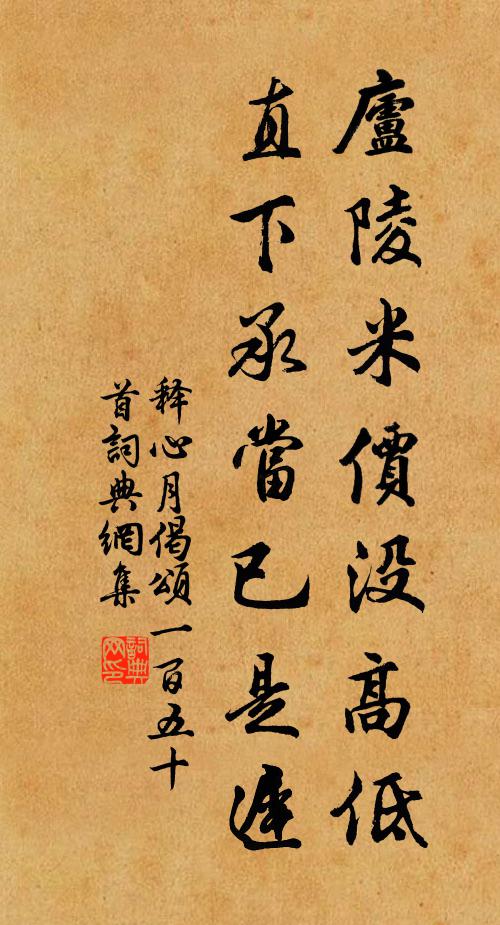 廬陵米價没高低
直下承當已是遲
释心月偈頌一百五十
首詞典網集
詞典
网印